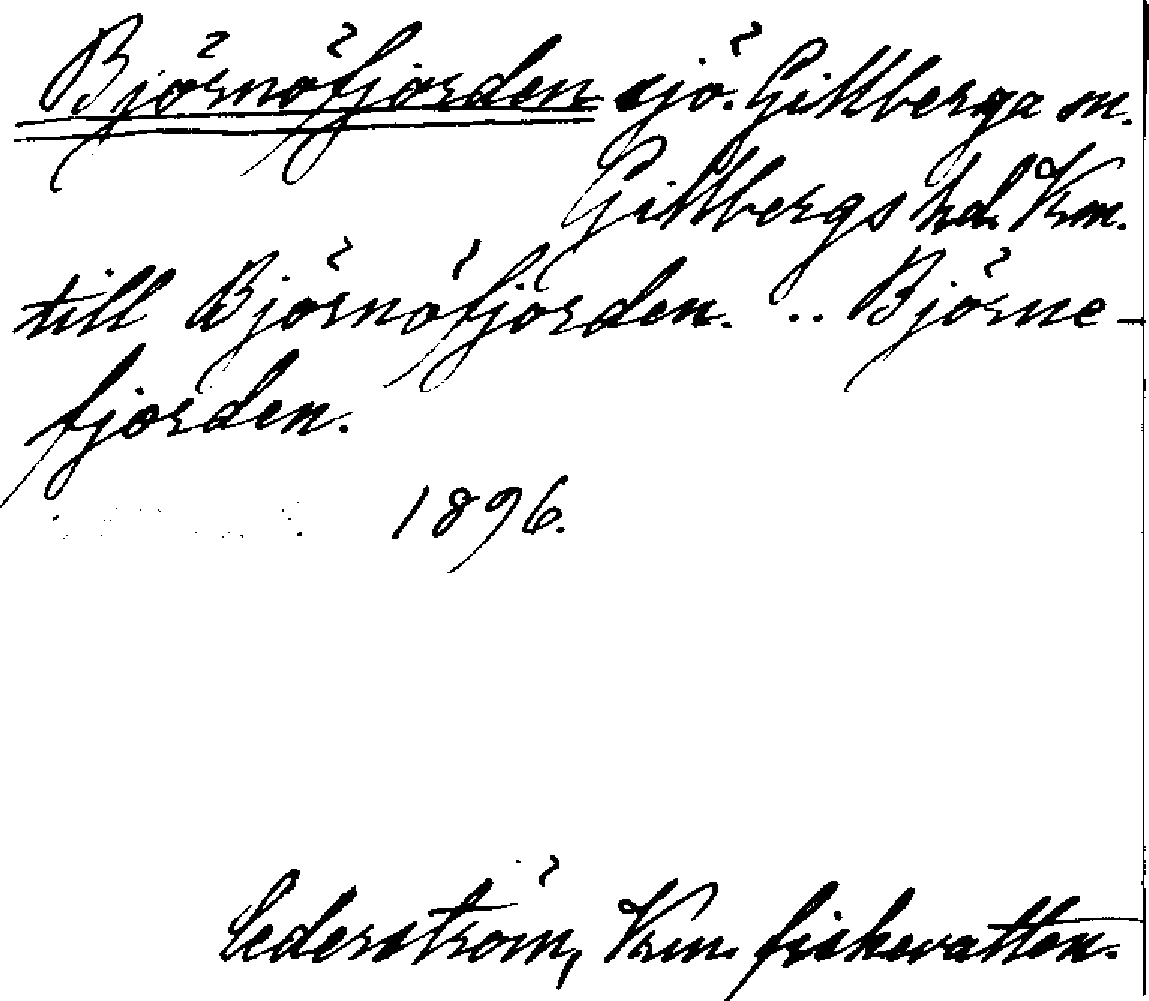 Björnöfjorden sjö. Gillberga sn.
Gillbergs hd. Vrm.
till Björnöfjorden. .. Björne-
fjorden.
1896.
Cederström, Vrm. fiskevatten.